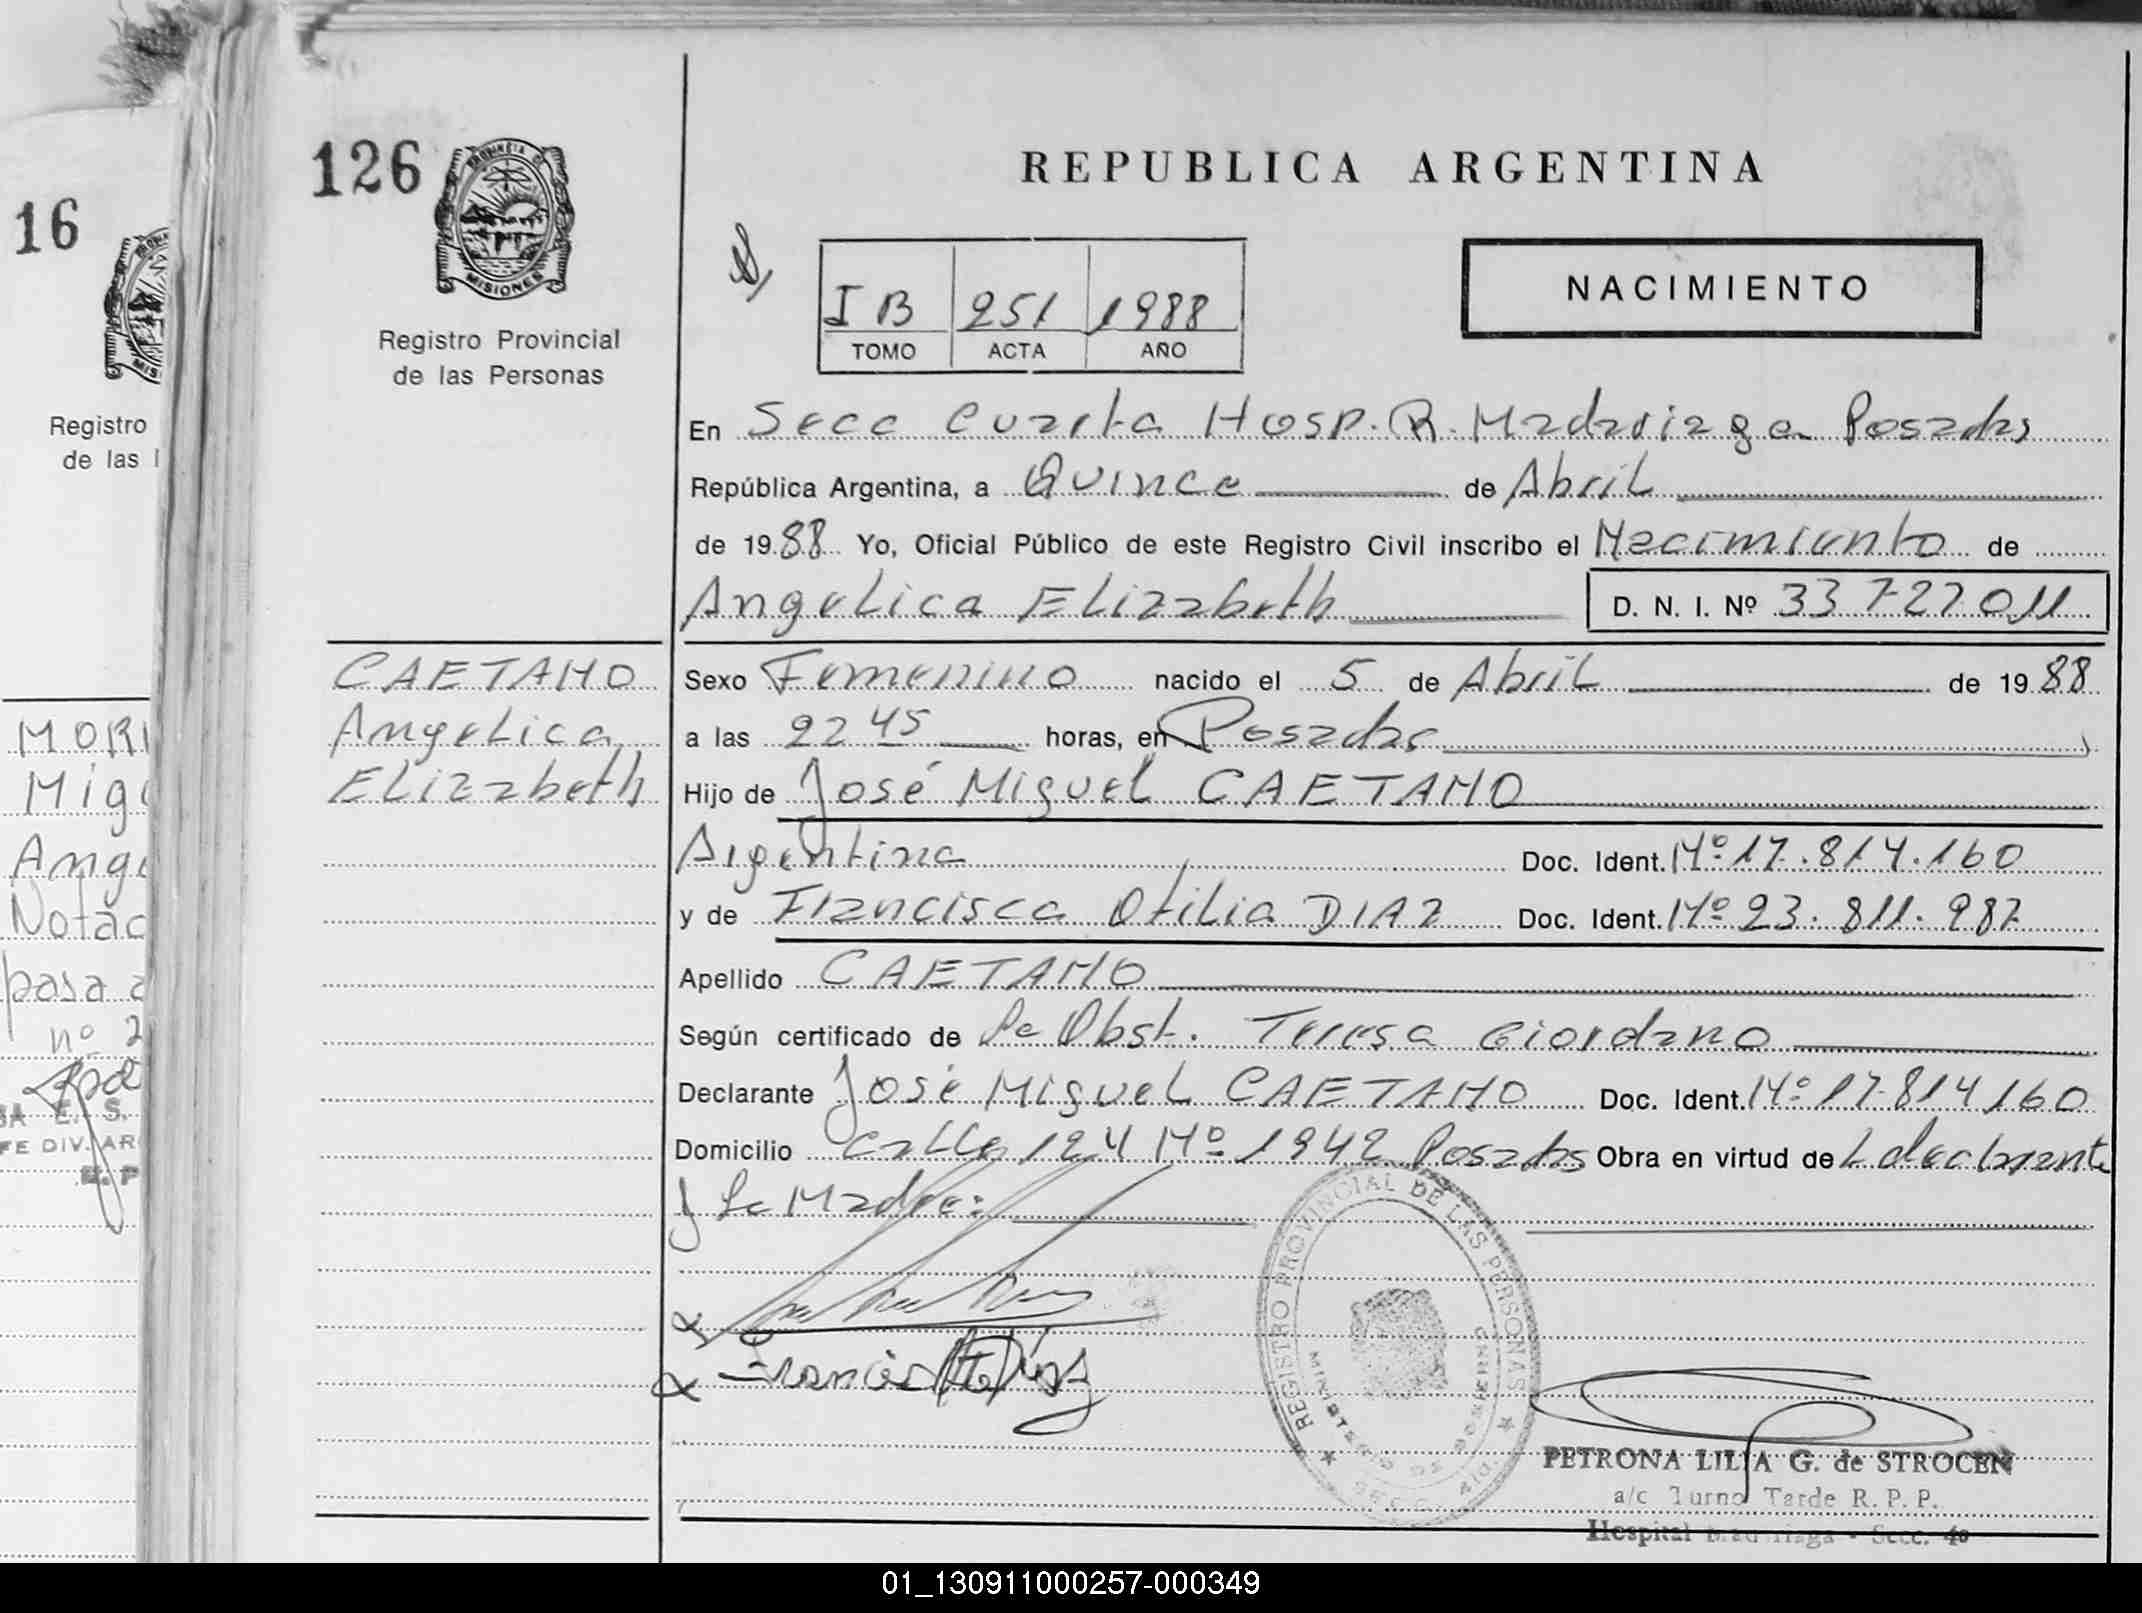 126
PROVINCIA DE
MISIONES
Registro Provincial
de las Personas
REPUBLICA ARGENTINA
NACIMIENTO
I B 251 1988
TOMO ACTA AÑO
En Secc Cuarta Hosp. R. Madariaga Posadas
República Argentina, a Quince de Abril
de 1988 Yo, Oficial Público de este Registro Civil inscribo el Nacimiento de
Angelica Elizabeth D. N. I. Nº 33727011
CAETANO
Angelica
Elizabeth
Sexo Femenino nacido el 5 de Abril de 1988
a las 22 45 horas, en Posadas
Hijo de José Miguel CAETANO
Argentina Doc. Ident. Nº 17.814.160
y de Francisca Otilia DIAZ Doc. Ident. Nº 23.811.987
Apellido CAETANO
Según certificado de La Obst. Teresa Giordano
Declarante José Miguel CAETANO Doc. Ident. Nº 17.814160
Domicilio Calle 124 Nº 1942 Posadas Obra en virtud de L declarante
y La Madre:
REGISTRO PROVINCIAL DE LAS PERSONAS
MINISTERIO DE GOBIERNO
PETRONA LILIA G. de STROCEN
a/c Turno Tarde R. P. P.
Hospital Madariaga - Secc. 4a
16
Registro
de las
MORI
Mig
Ang
Notac
pasa a
nº 2
E. S.
FE DIV. AR
01_130911000257-000349